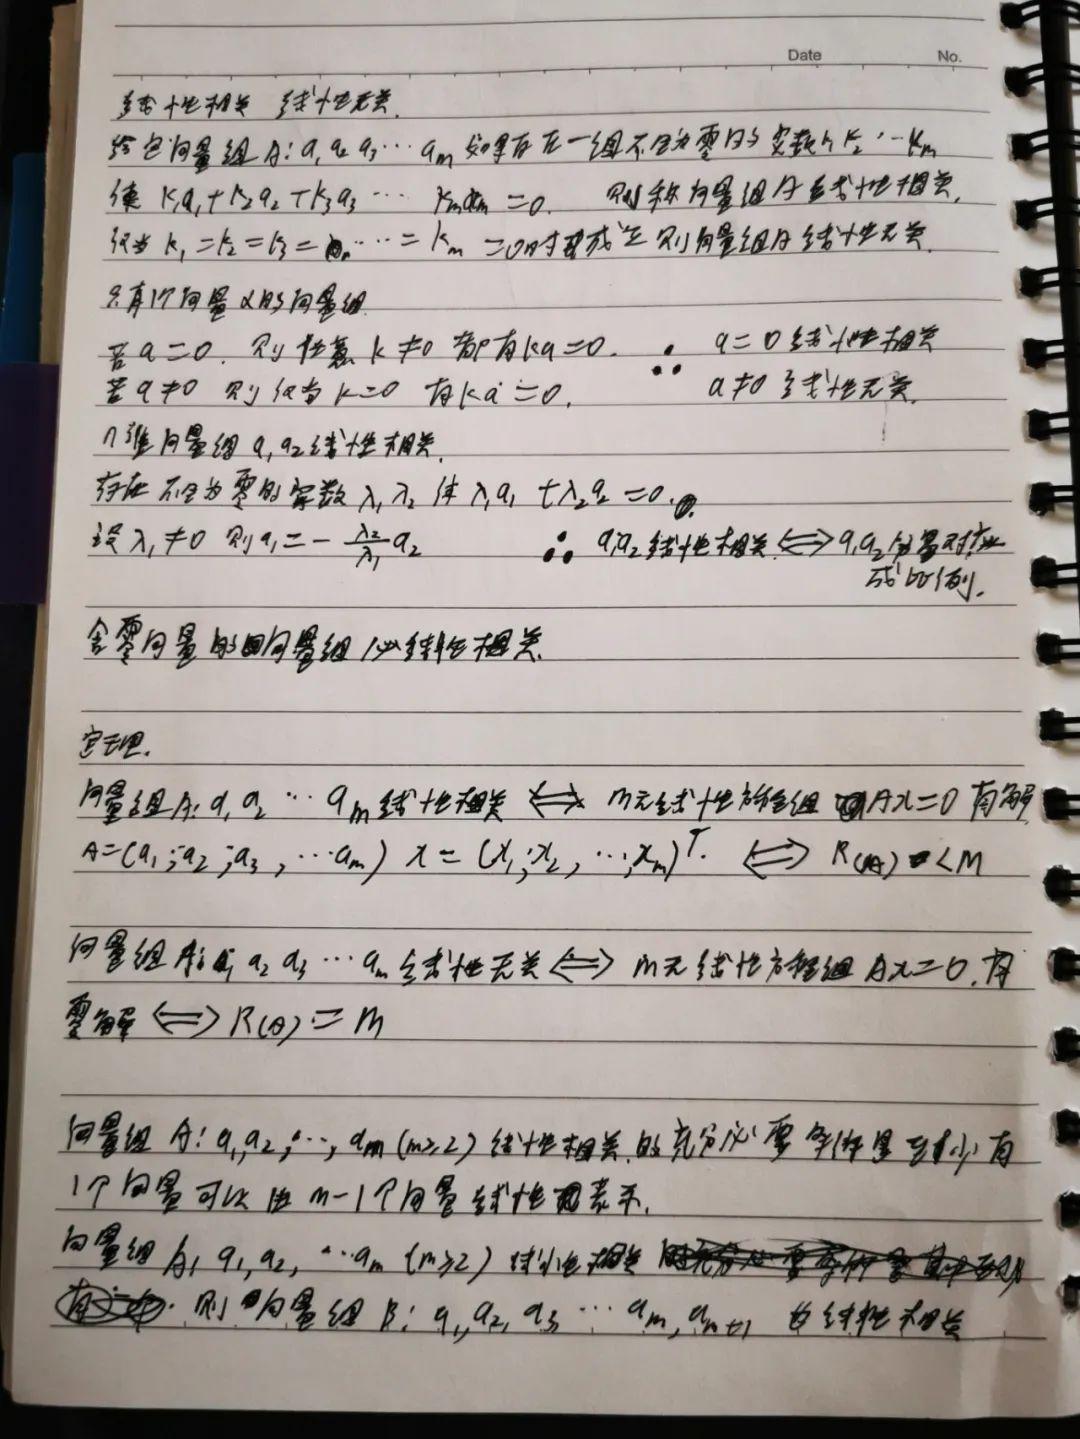 Date No.
线性相关 线性无关.
给定向量组A: a₁ a₂ a₃ … aₘ 如果存在一组不全为零的实数 k₁ k₂ … kₘ
使 k₁a₁+k₂a₂+k₃a₃ … kₘaₘ=0. 则称向量组A线性相关.
仅当 k₁=k₂=k₃= … =kₘ=0时才成立 则向量组A线性无关.
只有1个向量α的向量组
若a=0. 则任意k≠0 都有ka=0. ∴ a=0线性相关
若a≠0 则仅当k=0 有ka=0. a≠0 线性无关.
n维向量组 a₁ a₂线性相关.
存在不全为零的实数 λ₁ λ₂ 使λ₁a₁+λ₂a₂=0.
设λ₁≠0 则a₁=-λ₂/λ₁ a₂ ∴ a₁a₂线性相关 ⟺ a₁a₂分量对应
成比例.
含零向量的向量组必线性相关.
定理.
向量组A: a₁ a₂ … aₘ线性相关 ⟺ m元线性方程组 Ax=0有解
A=(a₁,a₂,a₃,…aₘ) x=(x₁,x₂,…,xₘ)ᵀ. ⟺ R(A)<M
向量组A: a₁ a₂ a₃ … aₘ 线性无关 ⟺ m元线性方程组 Ax=0.有
零解 ⟺ R(A)=M
向量组 A: a₁,a₂,…,aₘ (m≥2) 线性相关的充分必要条件是至少有
1个向量可以由m-1个向量线性表示.
向量组A, a₁,a₂, …aₘ (m≥2) 线性相关
则向量组B: a₁,a₂,a₃ … aₘ,aₘ₊₁ 也线性相关